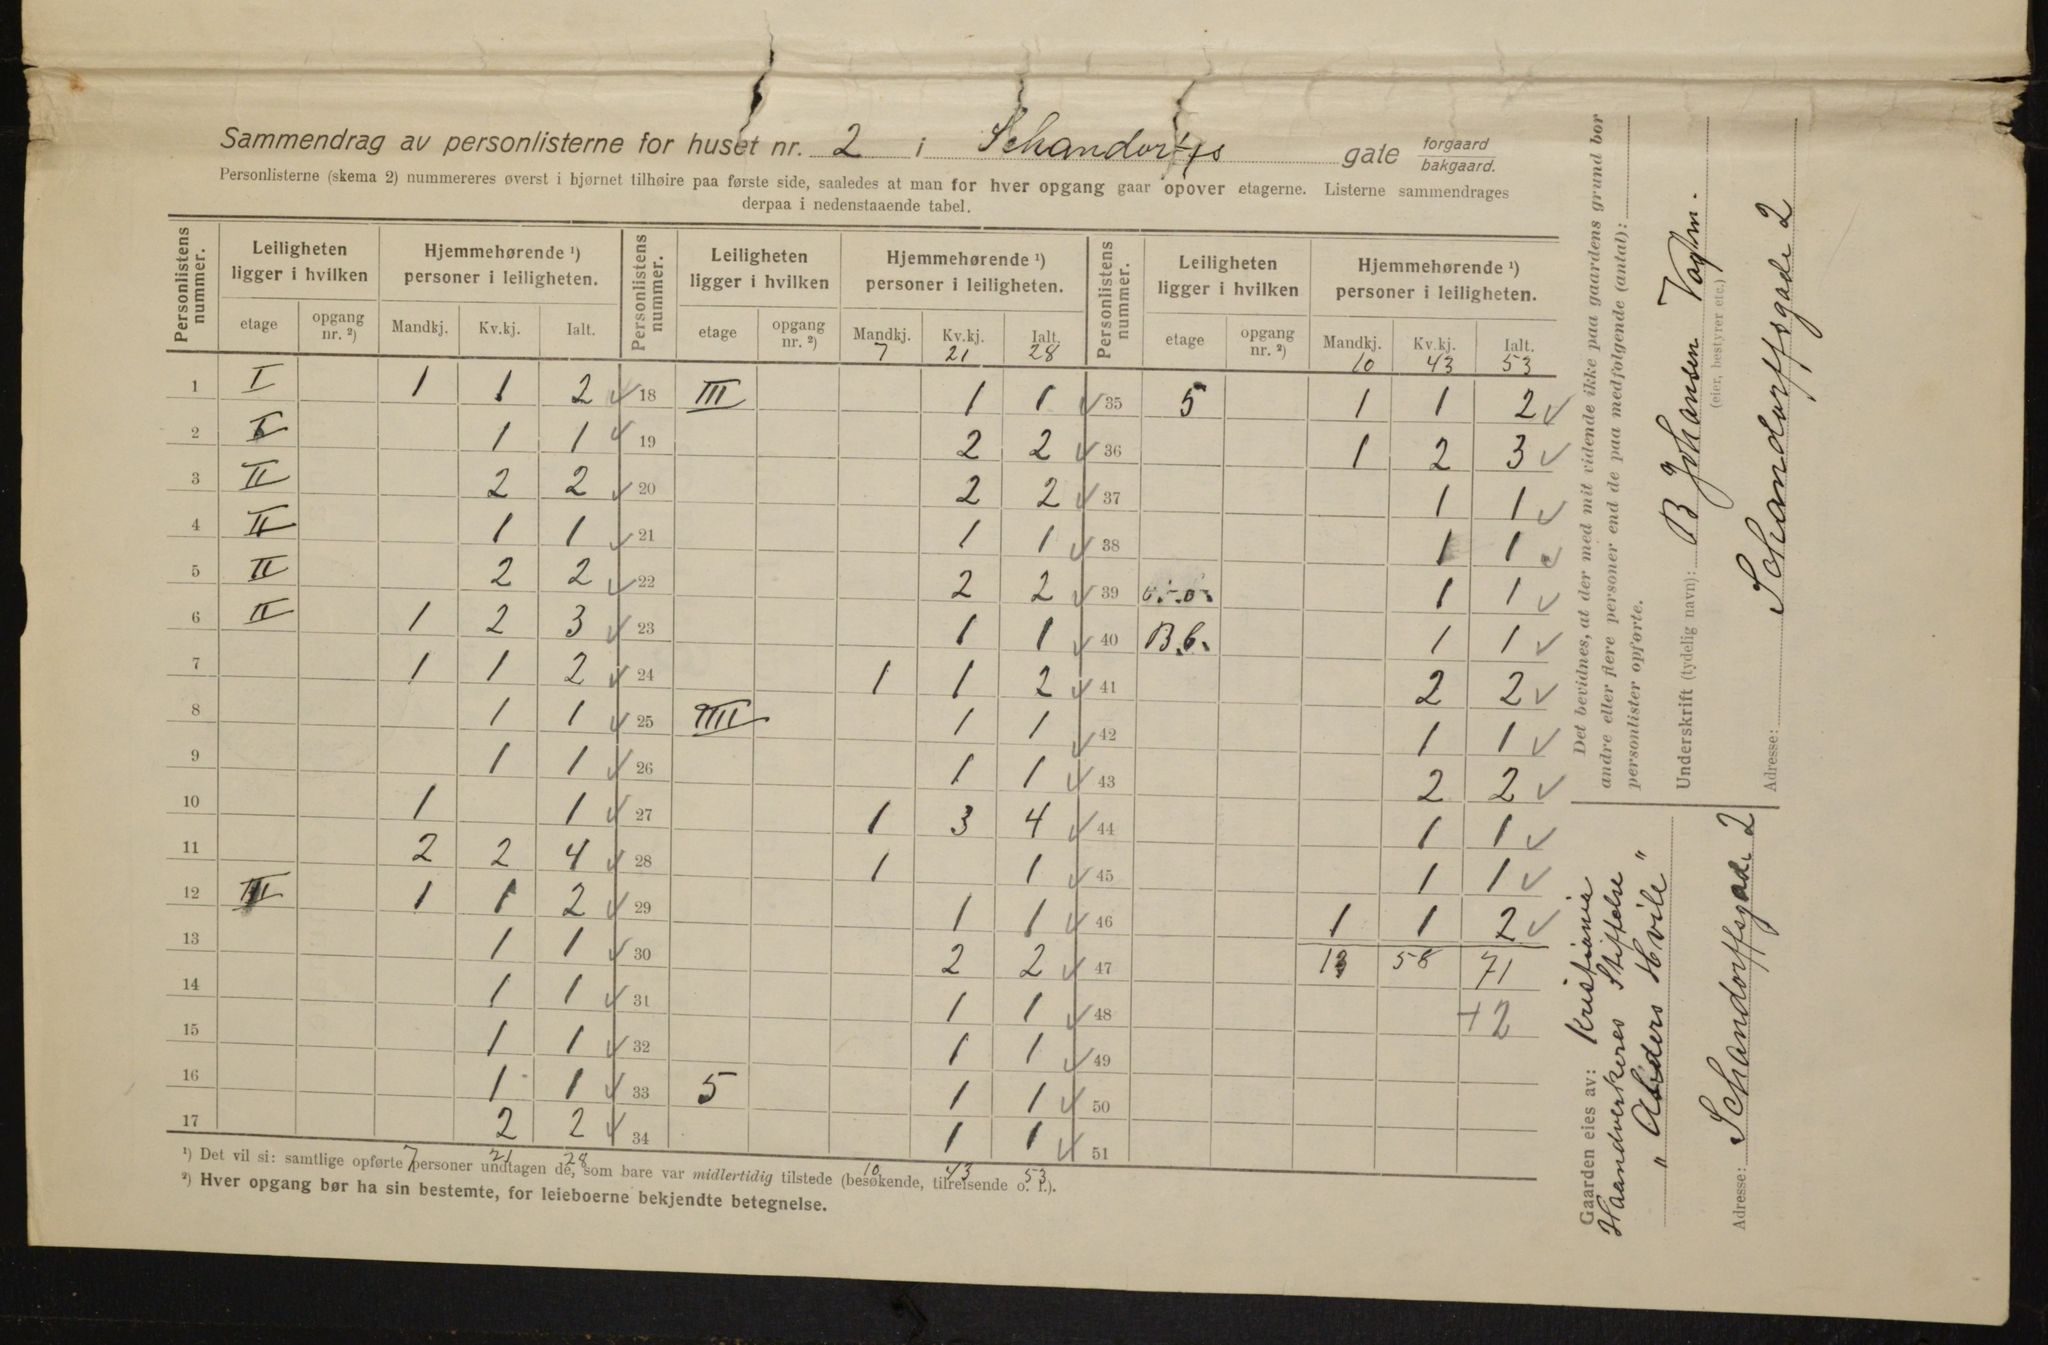 Sammendrag av personlisterne for huset nr. 2 i Schandorffs gate forgaard bakgaard.
Personlisterne (skema 2) nummereres øverst i hjørnet tilhøire paa første side, saaledes at man for hver opgang gaar opover etagerne. Listerne sammendrages
derpaa i nedenstaaende tabel.
Personlistens nummer. Leiligheten ligger i hvilken Hjemmehørende ¹) personer i leiligheten. Personlistens nummer. Leiligheten ligger i hvilken Hjemmehørende ¹) personer i leiligheten. Personlistens nummer. Leiligheten ligger i hvilken Hjemmehørende ¹) personer i leiligheten.
etage opgang nr. ²) Mandkj. Kv.kj. Ialt. etage opgang nr. ²) Mandkj. Kv.kj. Ialt. etage opgang nr. ²) Mandkj. Kv.kj. Ialt.
7 21 28 10 43 53
1 I 1 1 2 ✓ 18 III 1 1 ✓ 35 5 1 1 2 ✓
2 I 1 1 ✓ 19 2 2 ✓ 36 1 2 3 ✓
3 II 2 2 ✓ 20 2 2 ✓ 37 1 1 ✓
4 II 1 1 ✓ 21 1 1 ✓ 38 1 1 ✓
5 II 2 2 ✓ 22 2 2 ✓ 39 1 1 ✓
6 II 1 2 3 ✓ 23 1 1 ✓ 40 B.b. 1 1 ✓
7 1 1 2 ✓ 24 1 1 2 ✓ 41 2 2 ✓
8 1 1 ✓ 25 IIII 1 1 ✓ 42 1 1 ✓
9 1 1 ✓ 26 1 1 ✓ 43 2 2 ✓
10 1 1 ✓ 27 1 3 4 ✓ 44 1 1 ✓
11 2 2 4 ✓ 28 1 1 ✓ 45 1 1 ✓
12 III 1 1 2 ✓ 29 1 1 ✓ 46 1 1 2 ✓
13 1 1 ✓ 30 2 2 ✓ 47 13 58 71
14 1 1 ✓ 31 1 1 ✓ 48 +2
15 1 1 ✓ 32 1 1 ✓ 49
16 1 1 ✓ 33 5 1 1 ✓ 50
17 2 2 ✓ 34 1 1 ✓ 51
7 21 28 10 43 53
¹) Det vil si: samtlige opførte personer undtagen de, som bare var midlertidig tilstede (besøkende, tilreisende o. l.).
²) Hver opgang bør ha sin bestemte, for leieboerne bekjendte betegnelse.
Det bevidnes, at der med mit vidende ikke paa gaardens grund bor
andre eller flere personer end de paa medfølgende (antal):
personlister opførte.
Underskrift (tydelig navn): B Johansen Vagtm.
(eier, bestyrer etc.)
Adresse: Schandorffsgade 2
Gaarden eies av: Kristiania
Haandverkeres Stiftelse
" Alders Hvile "
Adresse: Schandorffsgade 2